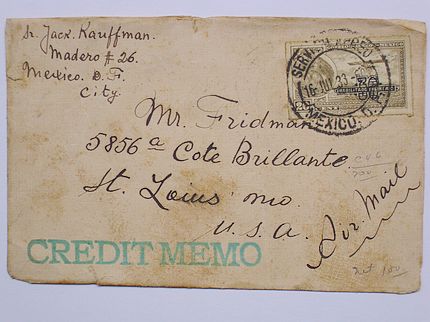 Sr. Jack Kauffman.
Madero #26.
Mexico. D. F.
City.
SERVICIO AEREO
MEXICO, D.F.
Mr. Fridman
5856 a Cote Brillante
St. Loius mo.
U. S. A.
Air Mail
CREDIT MEMO